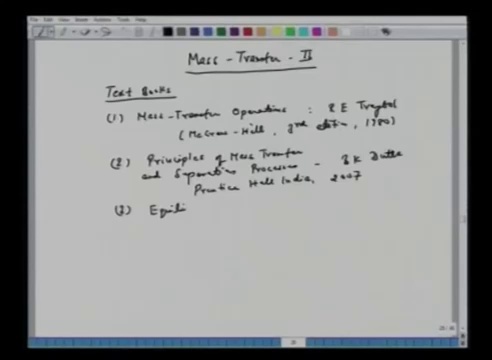 Mass-Transfer-II
Text Books
(1) Mass-Transfer Operations : R E Treybal
(McGraw-Hill, 3rd edition, 1980)
(2) Principles of Mass Transfer
and Separation Processes - B K Dutta
Prentice Hall India, 2007
(3) Equili